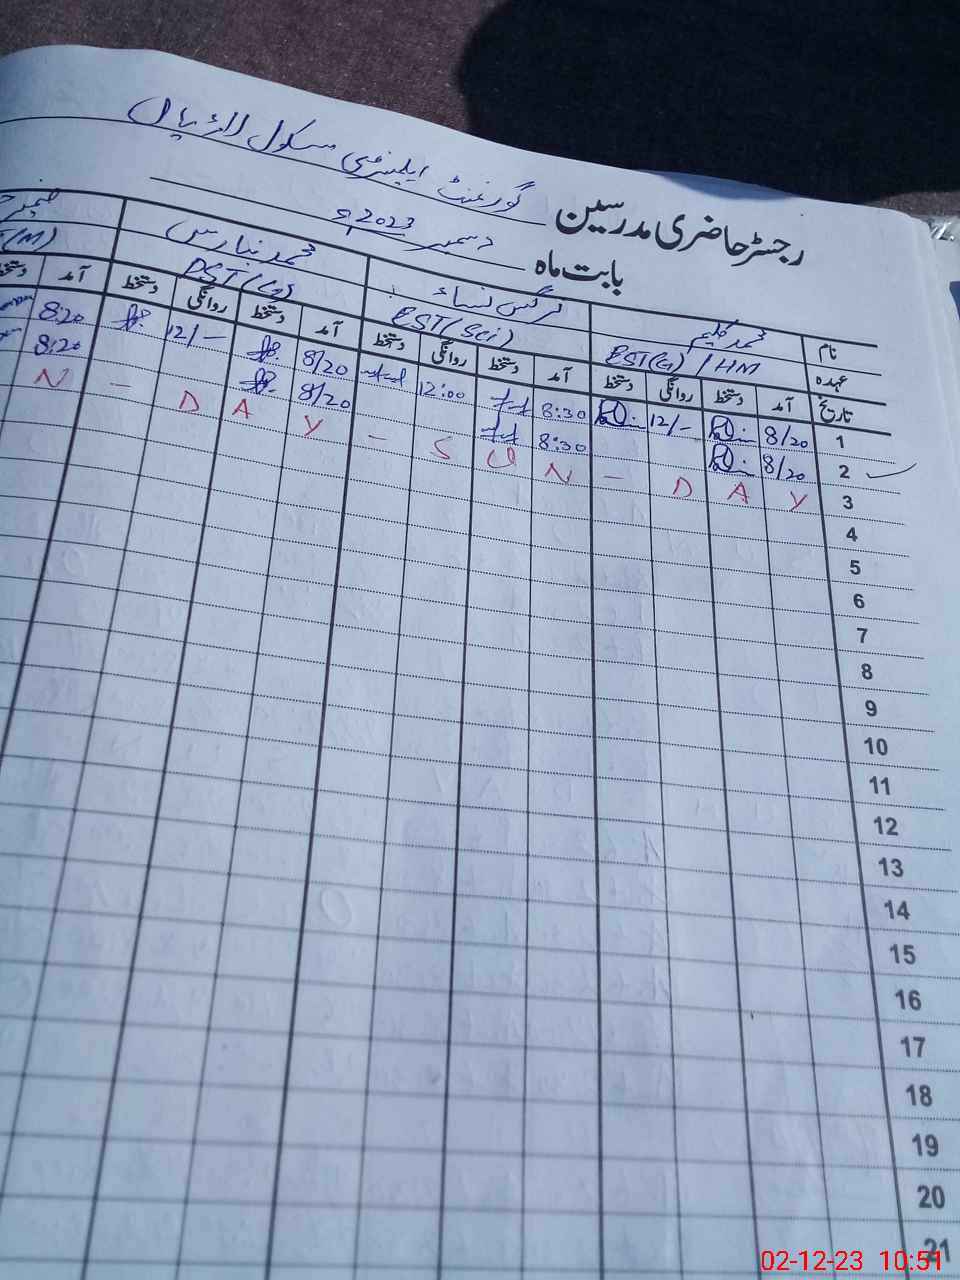 گورنمنٹ ایلیمنٹری سکول
رجسٹر حاضری مدرسین
بابت ماہ دسمبر 2023ء
نام محمد کلیم نرگس نساء محمد بنارس
عہدہ EST(G) / HM EST(Sci) PST(G) (M)
تاریخ آمد دستخط روانگی دستخط آمد دستخط روانگی دستخط آمد دستخط روانگی دستخط آمد دستخط
1 8/20 12/- 8:30 12:00 8/20 12/- 8:20
2 8/20 8:30 8/20 8:20
3 Y A D - N U S - Y A D - N
4
5
6
7
8
9
10
11
12
13
14
15
16
17
18
19
20
21
02-12-23 10:51